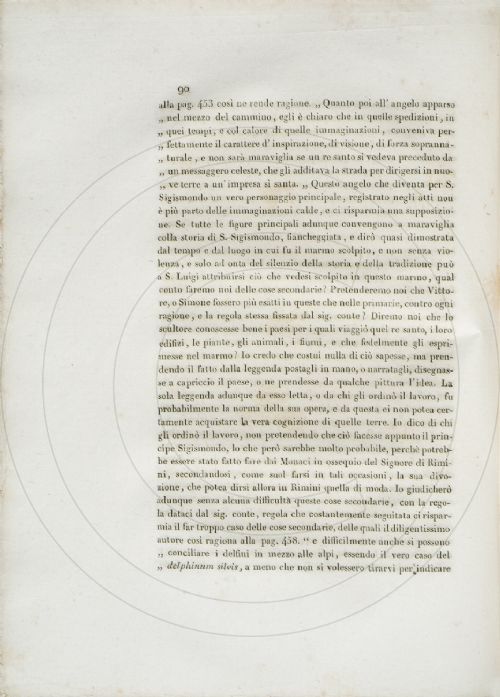 90
alla pag. 453 così ne rende ragione. „ Quanto poi all' angelo apparso
„ nel mezzo del cammino, egli è chiaro che in quelle spedizioni, in
„ quei tempi, e col calore di quelle immaginazioni, conveniva per-
„ fettamente il carattere d' inspirazione, di visione, di forza sopranna-
„ turale, e non sarà maraviglia se un re santo si vedeva preceduto da
„ un messaggero celeste, che gli additava la strada per dirigersi in nuo-
„ ve terre a un' impresa sì santa. „ Questo angelo che diventa per S.
Sigismondo un vero personaggio principale, registrato negli atti non
è più parto delle immaginazioni calde, e ci risparmia una supposizio-
ne. Se tutte le figure principali adunque convengono a maraviglia
colla storia di S. Sigismondo, fiancheggiata, e dirò quasi dimostrata
dal tempo e dal luogo in cui fu il marmo scolpito, e non senza vio-
lenza, e solo ad onta del silenzio della storia e della tradizione può
a S. Luigi attribuirsi ciò che vedesi scolpito in questo marmo, qual
conto faremo noi delle cose secondarie? Pretenderemo noi che Vitto-
re, o Simone fossero più esatti in queste che nelle primarie, contro ogni
ragione, e la regola stessa fissata dal sig. conte? Diremo noi che lo
scultore conoscesse bene i paesi per i quali viaggiò quel re santo, i loro
edifizi, le piante, gli animali, i fiumi, e che fedelmente gli espri-
messe nel marmo? Io credo che costui nulla di ciò sapesse, ma pren-
dendo il fatto dalla leggenda postagli in mano, o narratagli, disegnas-
se a capriccio il paese, o ne prendesse da qualche pittura l'idea. La
sola leggenda adunque da esso letta, o da chi gli ordinò il lavoro, fu
probabilmente la norma della sua opera, e da questa ei non potea cer-
tamente acquistare la vera cognizione di quelle terre. Io dico di chi
gli ordinò il lavoro, non pretendendo che ciò facesse appunto il prin-
cipe Sigismondo, lo che però sarebbe molto probabile, perchè potreb-
be essere stato fatto fare dai Monaci in ossequio del Signore di Rimi-
ni, secondandosi, come suol farsi in tali occasioni, la sua divo-
zione, che potea dirsi allora in Rimini quella di moda. Io giudicherò
adunque senza alcuna difficultà queste cose secondarie, con la rego-
la dataci dal sig. conte, regola che costantemente seguitata ci rispar-
mia il far troppo caso delle cose secondarie, delle quali il diligentissimo
autore così ragiona alla pag. 438. “ e difficilmente anche si possono
„ conciliare i delfini in mezzo alle alpi, essendo il vero caso del
„ delphinum silvis, a meno che non si volessero tirarvi per indicare